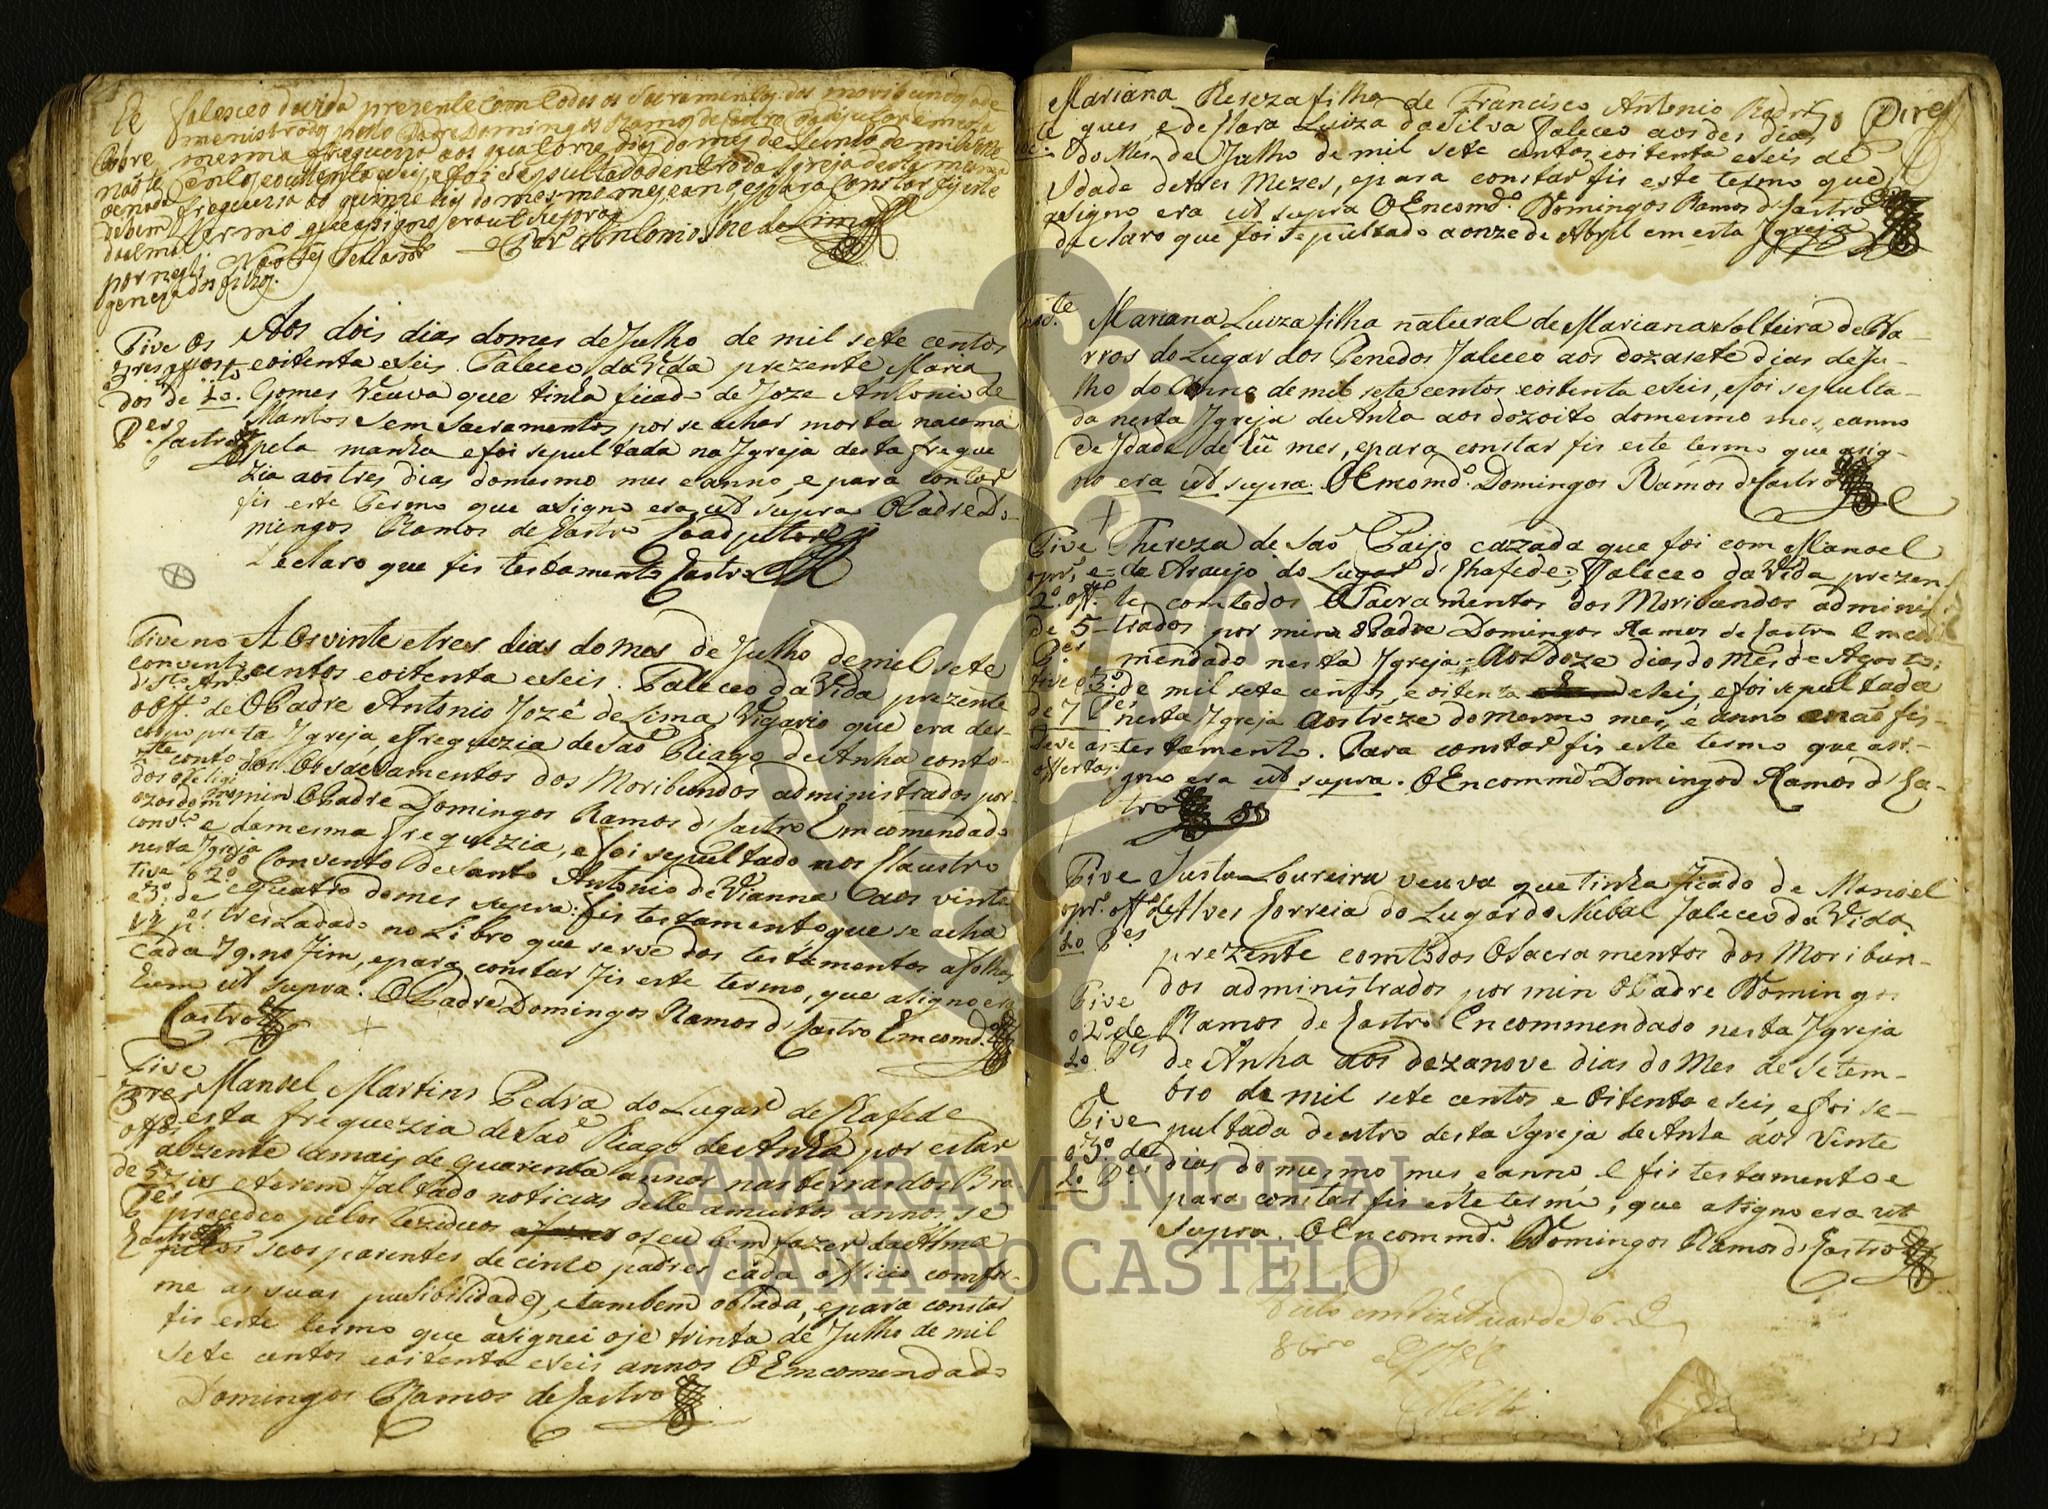 te falesceo da vida prezente com todos os Sacramentos dos moribundos ad
menistrados pello Padre Domingos Ramos de Castro Coadjutor emesta
mesma freguezia aos quatorze dias do mes de Junho de mil sete
centos e outtenta e seis, e foi sepultado dentro da Igreja desta mesma
freguezia ao quinze dias do mesmo mes, e ano, e para constar fis este
termo que asigno era ut supra
Não fes testamto
O Vigr.o Antonio Joze de Lima
Pobre
nao te
ve nada
de bem
da alma
por negli
gencia dos filhos.
Aos dois dias do mes de Julho de mil sete centos
e oitenta e seis. Faleceo da Vida prezente Maria
Gomes Veuva que tinha ficado de Joze Antonio de
Mattos sem Sacramentos por se achar morta na cama
pela manha e foi sepultada na Igreja desta fregue
zia aos tres dias do mesmo mes e anno, e para constar
fis este Termo que asigno era ut supra O Padre Do-
mingos Ramos de Castro Coadjuttor
Declaro que fis testamento Castro
Tive os
tres off.os
dos de 10.
P.es
Castro
Aos vinte e tres dias do mes de Julho de mil sete
centos e oitenta e seis. Faleceo da Vida prezente
O Padre Antonio Jozé de Lima Vigario que era des-
ta Igreja, e freguezia de Sao Thiago de Anha com to-
dos Os sacramentos dos Moribundos administrados por
min O Padre Domingos Ramos d'Castro Emcomendado
da mesma freguezia, e foi sepultado nos Claustro
Convento de Santo Antonio de Vianna aos vinte
e quatro do mes supra: fis testamento que se acha
tresladado no Livro que serve dos testamentos a folhas
cada 19. no fim, e para constar fis este termo, que asigno era
hum ut supra. O Padre Domingos Ramos d'Castro Emcomd.o
Tive no
convent.o
d'St.o Ant.o
o Off.o de
corpo pre
z.te com to
dos os religi
ozos do mmo
conv.to e
nesta Igreja
tive o 2.o
e 3.o de
12 p.es
Castro
Manoel Martins Pedra do Lugar de Chafede
desta freguezia de Sao Thiago de Anha por estar
abzente a mais de quarenta annos nas terras dos Bra
zis e terem faltado noticias delle a muitos annos se
procedeo pelos reziduos a fazer o seu bem fazer da Alma
pelos seos parentes de cinco padres cada officio comfor-
me as suas pusibilidades, e tambem oblada, e para constar
fis este termo que asignei oje trinta de Julho de mil
sete centos e oitenta e seis annos O Emcomendado
Domingos Ramos de Castro
Tive
tres
off.os
de 5
P.es
Castro
Mariana Thereza filha de Francisco Antonio Rodri-
gues e de Clara Luiza da Silva Faleceo aos des dias
do Mes de Julho de mil sete centos e oitenta e seis de
Idade de tres Mezes, e para constar fis este termo que
asigno era ut supra O Encomd.o Domingos Ramos d'Castro
declaro que foi sepultado a onze de Abril em esta Igreja
Pires
Mariana Luiza filha natural de Mariana Solteira de Ba-
rros do Lugar dos Penedos Faleceo aos dozasete dias de Ju-
lho do Anno de mil sete centos e oitenta e seis, e foi sepulta-
da nesta Igreja de Anha aos dozoito do mesmo mes, e anno
de Idade de hũ mes, e para constar fis este termo que asig-
no era ut supra. O Emcomd.o Domingos Ramos d'Castro
Thereza de Sao Paijo cazada que foi com Manoel
de Araujo do Lugar d'Chafede. Faleceo da Vida prezen
te, com todos O Sacramentos dos Moribundos adminis
trados por min O Padre Domingos Ramos de Castro Emco
mendado nesta Igreja, Aos doze dias do Mês de Agosto
de mil sete centos, e oitenta e seis, e foi sepultada
nesta Igreja Aos treze do mesmo mes, e anno e não fis-
testamento. Para constar fis este termo que asi-
gno era ut supra. O Encommd.o Domingos Ramos d'Cas-
tro
Tive
o pr.o e
2.o off.o
de 5
P.es
tive o 3.o
de 7 P.es
Teve as
offertas.
Justa Loureira veuva que tinha ficado de Manoel
Alves Correia do Lugar do Nubal Faleceo da Vida
prezente com todos Os Sacramentos dos Moribun-
dos administrados por min O Padre Domingos
Ramos de Castro Encommendado nesta Igreja
de Anha aos dezanove dias do Mes de Setem-
bro de mil sete centos e Oitenta e seis, e foi se-
pultada dentro desta Igreja de Anha aos Vinte
dias do mesmo mes, e anno, e fis testamento e
para constar fis este termo, que asigno era ut
supra. O Encommd.o Domingos Ramos d'Castro
Tive
o pr.o off.o de
10 P.es
Tive
o 2.o de
10 P.es
Tive
o 3.o de
10 P.es
8bro
CÂMARA MUNICIPAL
VIANA DO CASTELO